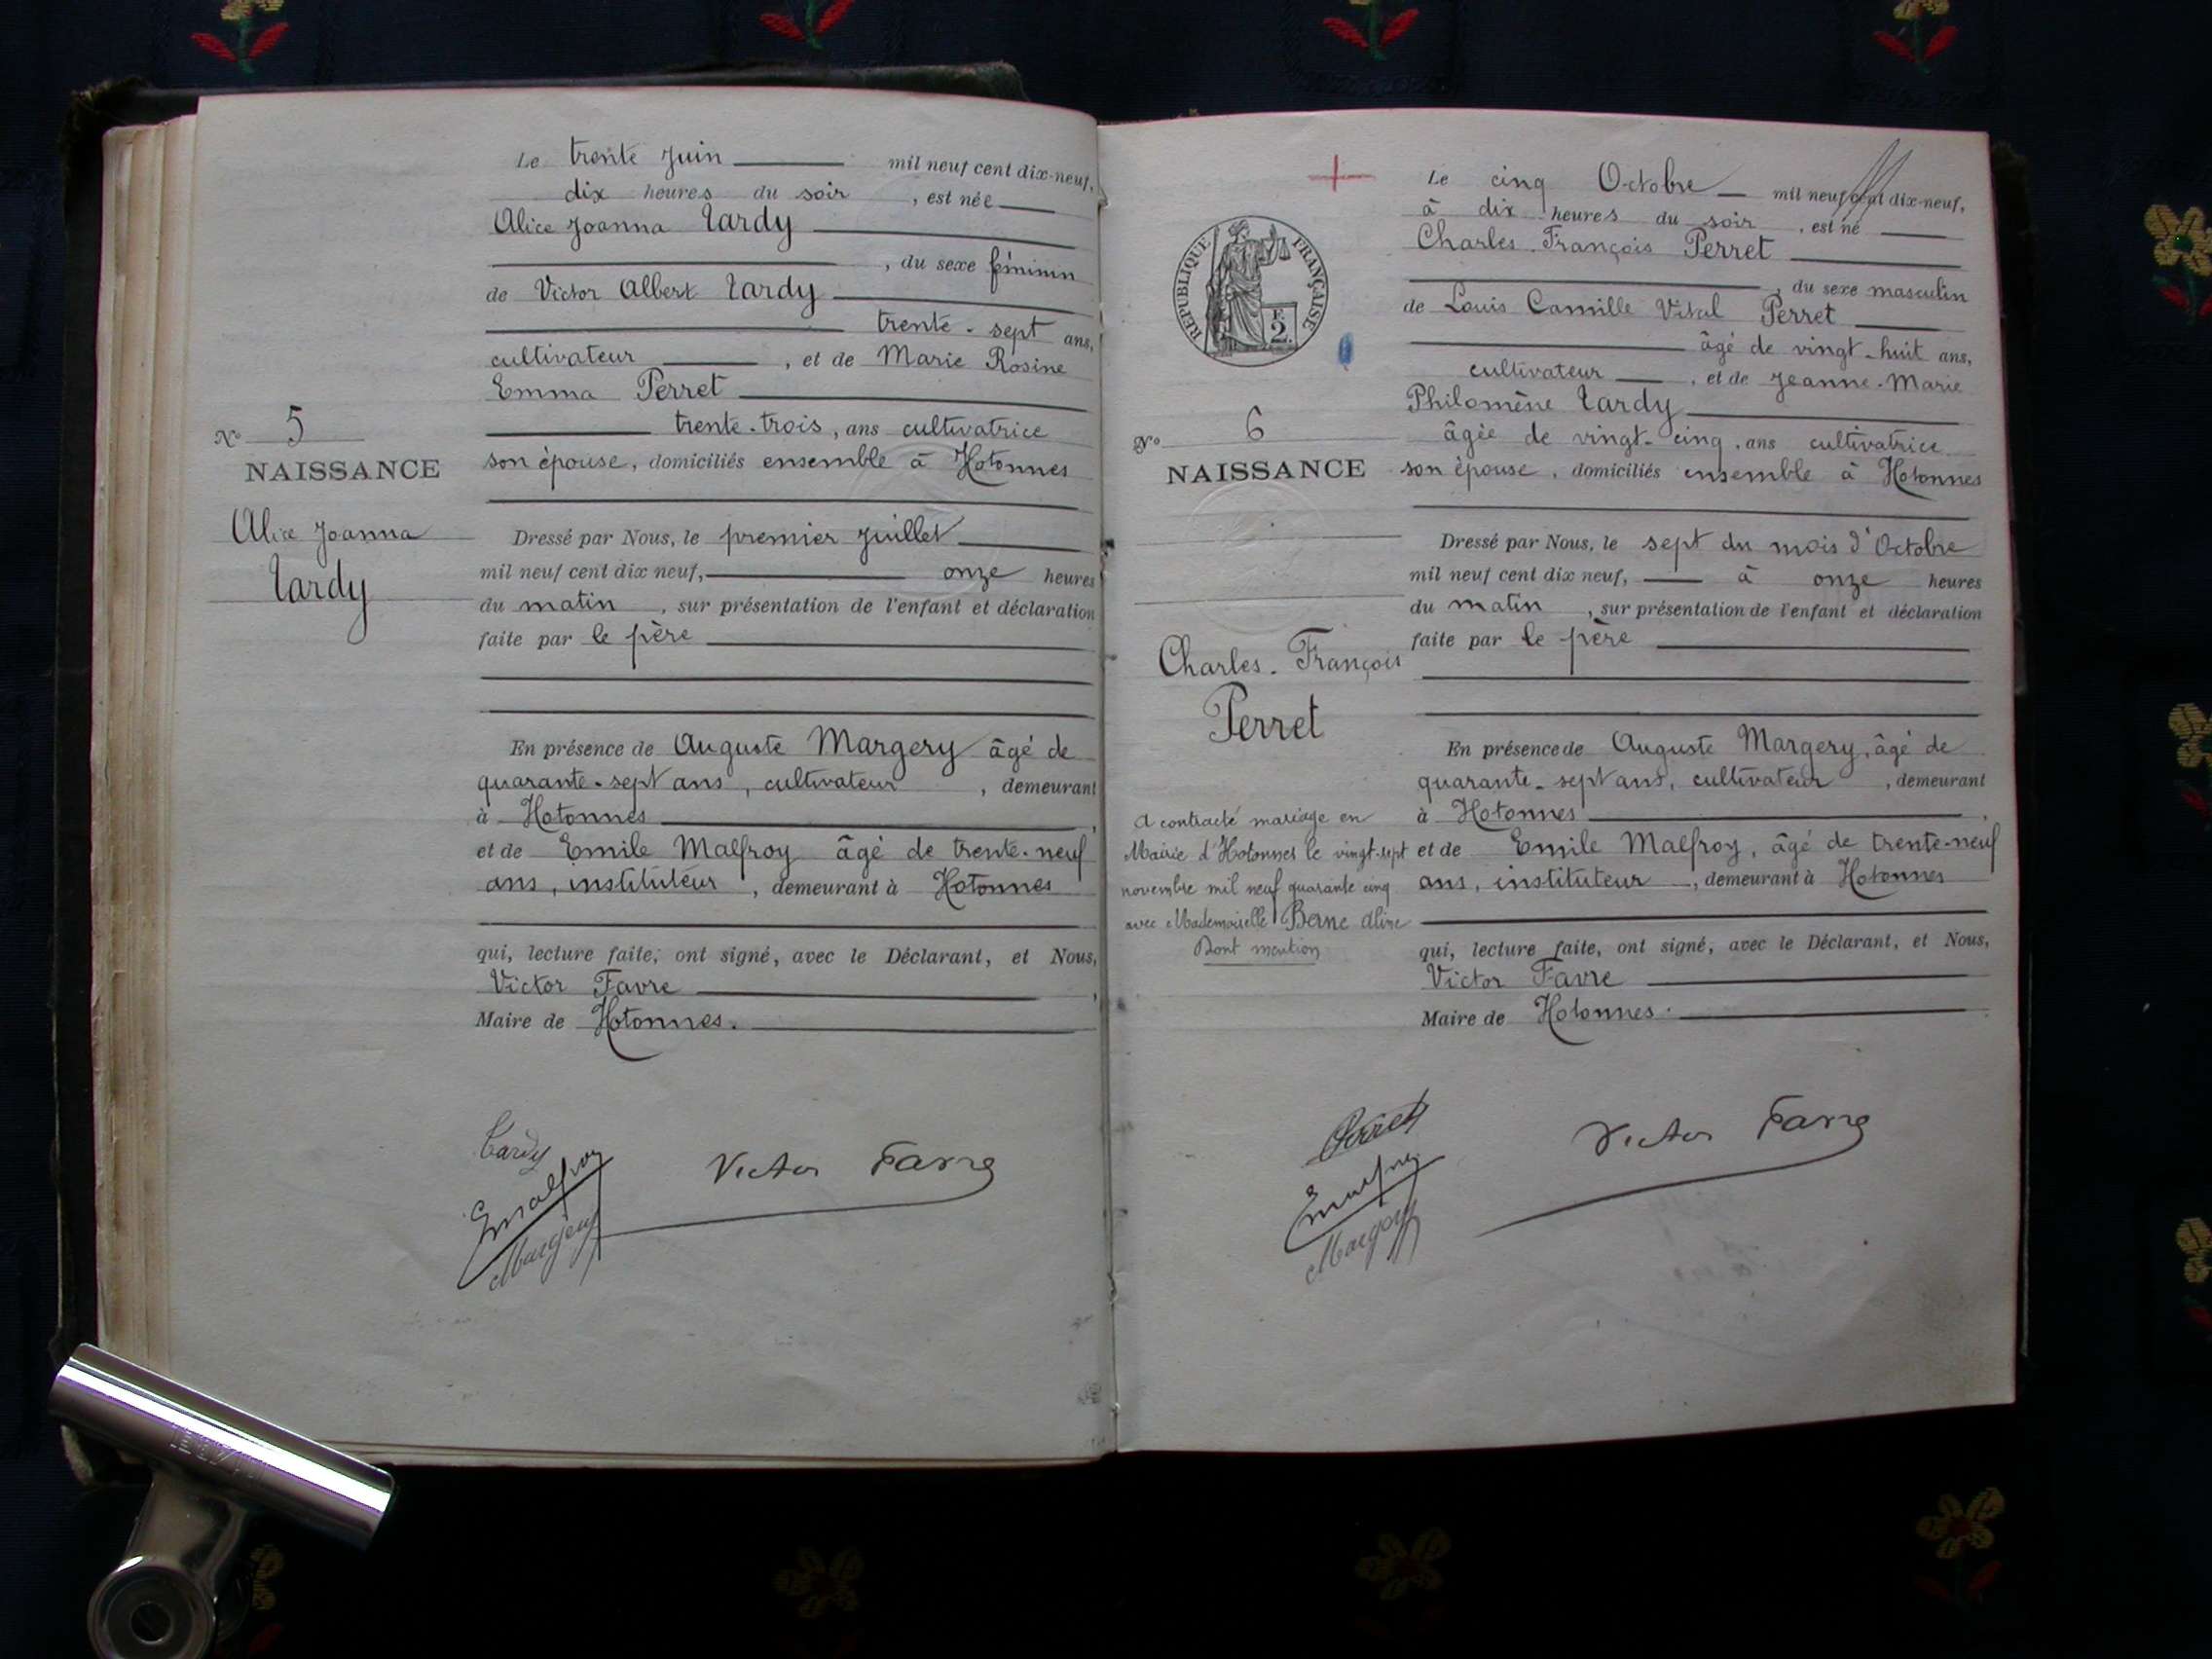 Le trente Juin mil neuf cent dix-neuf,
dix heures du soir, est née
Alice Joanna Tardy
, du sexe féminin
de Victor Albert Tardy
trente-sept ans,
cultivateur, et de Marie Rosine
Emma Perret
trente-trois, ans cultivatrice
son épouse, domiciliés ensemble à Hotonnes
N° 5
NAISSANCE
Alice Joanna
Tardy
Dressé par Nous, le premier Juillet
mil neuf cent dix neuf, onze heures
du matin, sur présentation de l'enfant et déclaration
faite par le père
En présence de Auguste Margery âgé de
quarante-sept ans, cultivateur, demeurant
à Hotonnes,
et de Emile Malfroy âgé de trente-neuf
ans, instituteur, demeurant à Hotonnes
qui, lecture faite, ont signé, avec le Déclarant, et Nous,
Victor Favre,
Maire de Hotonnes.
Tardy
EMalfroy
Margery
Victor Favre
Le cinq Octobre mil neuf cent dix-neuf,
à dix heures du soir, est né
Charles François Perret
, du sexe masculin
de Louis Camille Vital Perret
âgé de vingt-huit ans,
cultivateur, et de Jeanne-Marie
Philomène Tardy
âgée de vingt-cinq, ans cultivatrice
son épouse, domiciliés ensemble à Hotonnes
REPUBLIQUE FRANÇAISE
F.
2.
N° 6
NAISSANCE
Charles-François
Perret
A contracté mariage en
Mairie d'Hotonnes le vingt-sept
novembre mil neuf quarante cinq
avec Mademoiselle Berne Aline
Dont mention
Dressé par Nous, le sept du mois d'Octobre
mil neuf cent dix neuf, à onze heures
du matin, sur présentation de l'enfant et déclaration
faite par le père
En présence de Auguste Margery, âgé de
quarante-sept ans, cultivateur, demeurant
à Hotonnes,
et de Emile Malfroy, âgé de trente-neuf
ans, instituteur, demeurant à Hotonnes
qui, lecture faite, ont signé, avec le Déclarant, et Nous,
Victor Favre
Maire de Hotonnes.
Perret
EMalfroy
Margery
Victor Favre